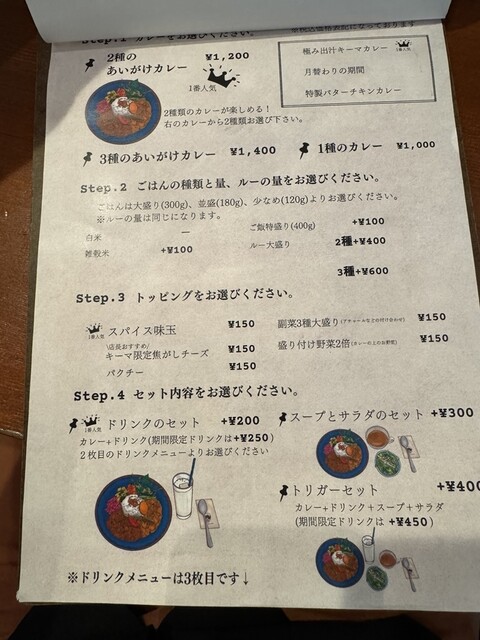 Step.1 カレーをお選びください。
※税込価格表記になっております
2種の
あいがけカレー ¥1,200
1番人気
2種類のカレーが楽しめる！
右のカレーから2種類お選び下さい。
極み出汁キーマカレー 1番人気
月替わりの期間
特製バターチキンカレー
3種のあいがけカレー ¥1,400
1種のカレー ¥1,000
Step.2 ごはんの種類と量、ルーの量をお選びください。
ごはんは大盛り(300g)、並盛(180g)、少なめ(120g)よりお選びください。
※ルーの量は同じになります。
白米 ー
雑穀米 +¥100
ご飯特盛り(400g) +¥100
ルー大盛り 2種+¥400
3種+¥600
Step.3 トッピングをお選びください。
1番人気 スパイス味玉 ¥150
\店長おすすめ/
キーマ限定焦がしチーズ ¥150
パクチー ¥150
副菜3種大盛り(アチャールなどの付け合わせ) ¥150
盛り付け野菜2倍(カレーの上のお野菜) ¥150
Step.4 セット内容をお選びください。
1番人気 ドリンクのセット +¥200
カレー+ドリンク(期間限定ドリンクは+¥250)
2枚目のドリンクメニューよりお選びください
スープとサラダのセット +¥300
トリガーセット +¥400
カレー+ドリンク+スープ+サラダ
(期間限定ドリンクは +¥450)
※ドリンクメニューは3枚目です↓